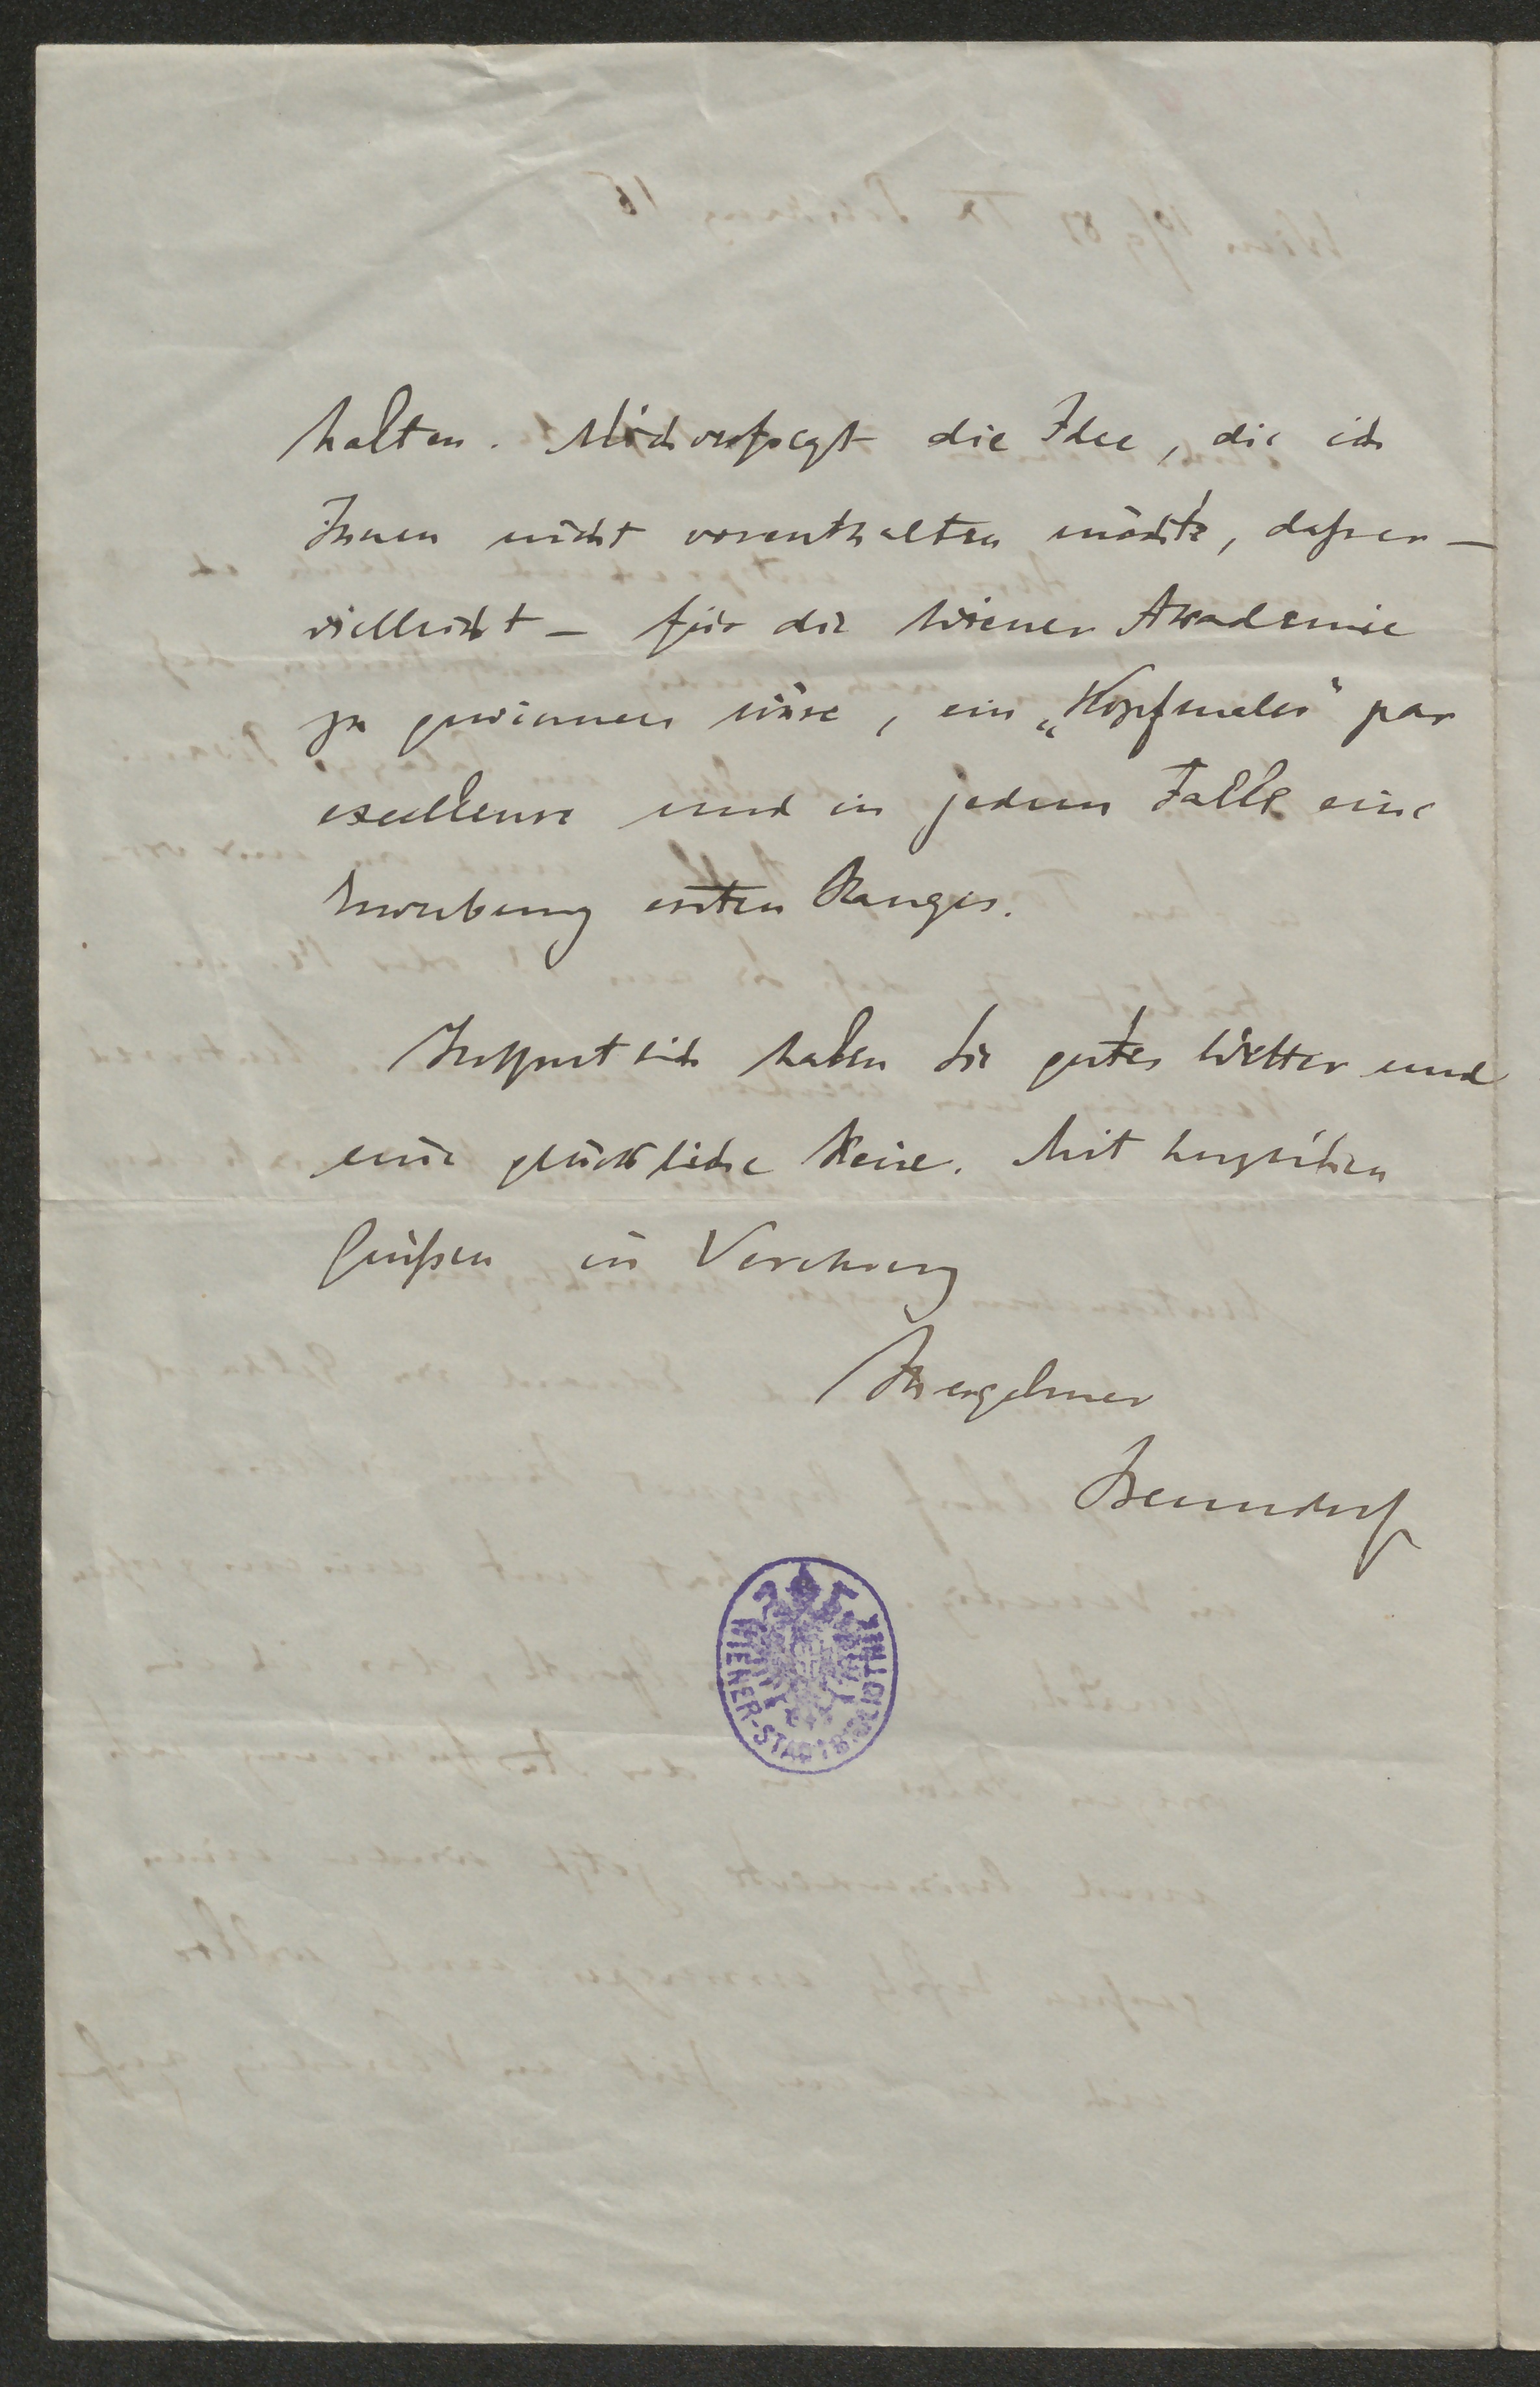 halten. Mich verfolgt die Idee, die ich
Ihnen nicht vorenthalten möchte, daß er –
vielleicht – für die Wiener Akademie
zu gewinnen wäre, ein „Kopfmaler“ par
excellence und in jedem Falle eine
Erwerbung ersten Ranges.
Hoffentlich haben Sie gutes Wetter und
eine glückliche Reise. Mit herzlichen
Grüßen in Verehrung
Ihr ergebener
Benndorf
WIENER-STADTBIBLIOTHEK